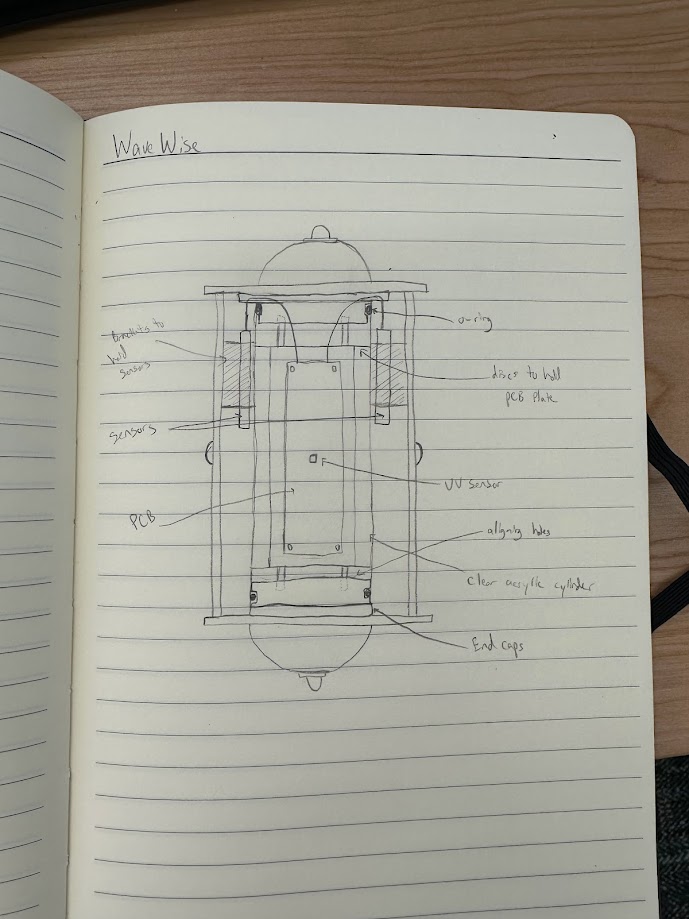 Wave Wise
brackets to
hold
sensors
o-ring
discs to hold
PCB Plate
sensors
UV sensor
PCB
aligning holes
clear acrylic cylinder
End caps